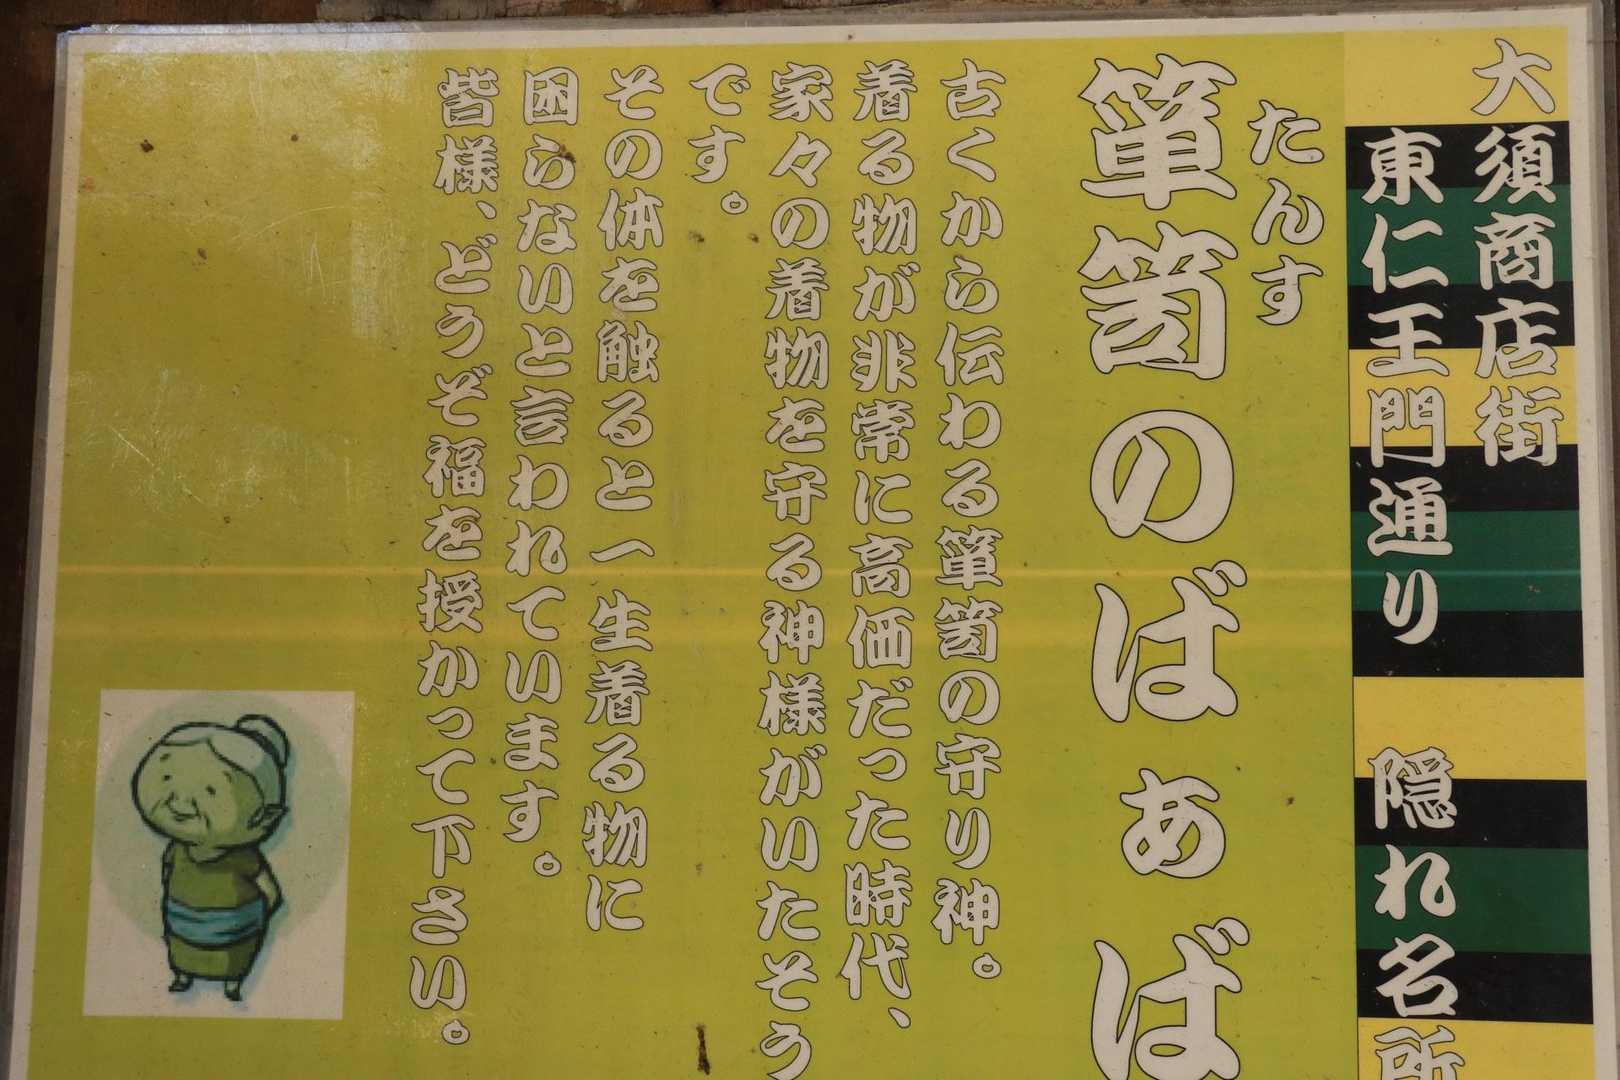 大須商店街
東仁王門通り 隠れ名所
たんす
箪笥のばぁば
古くから伝わる箪笥の守り神。
着る物が非常に高価だった時代、
家々の着物を守る神様がいたそう
です。
その体を触ると一生着る物に
困らないと言われています。
皆様、どうぞ福を授かって下さい。